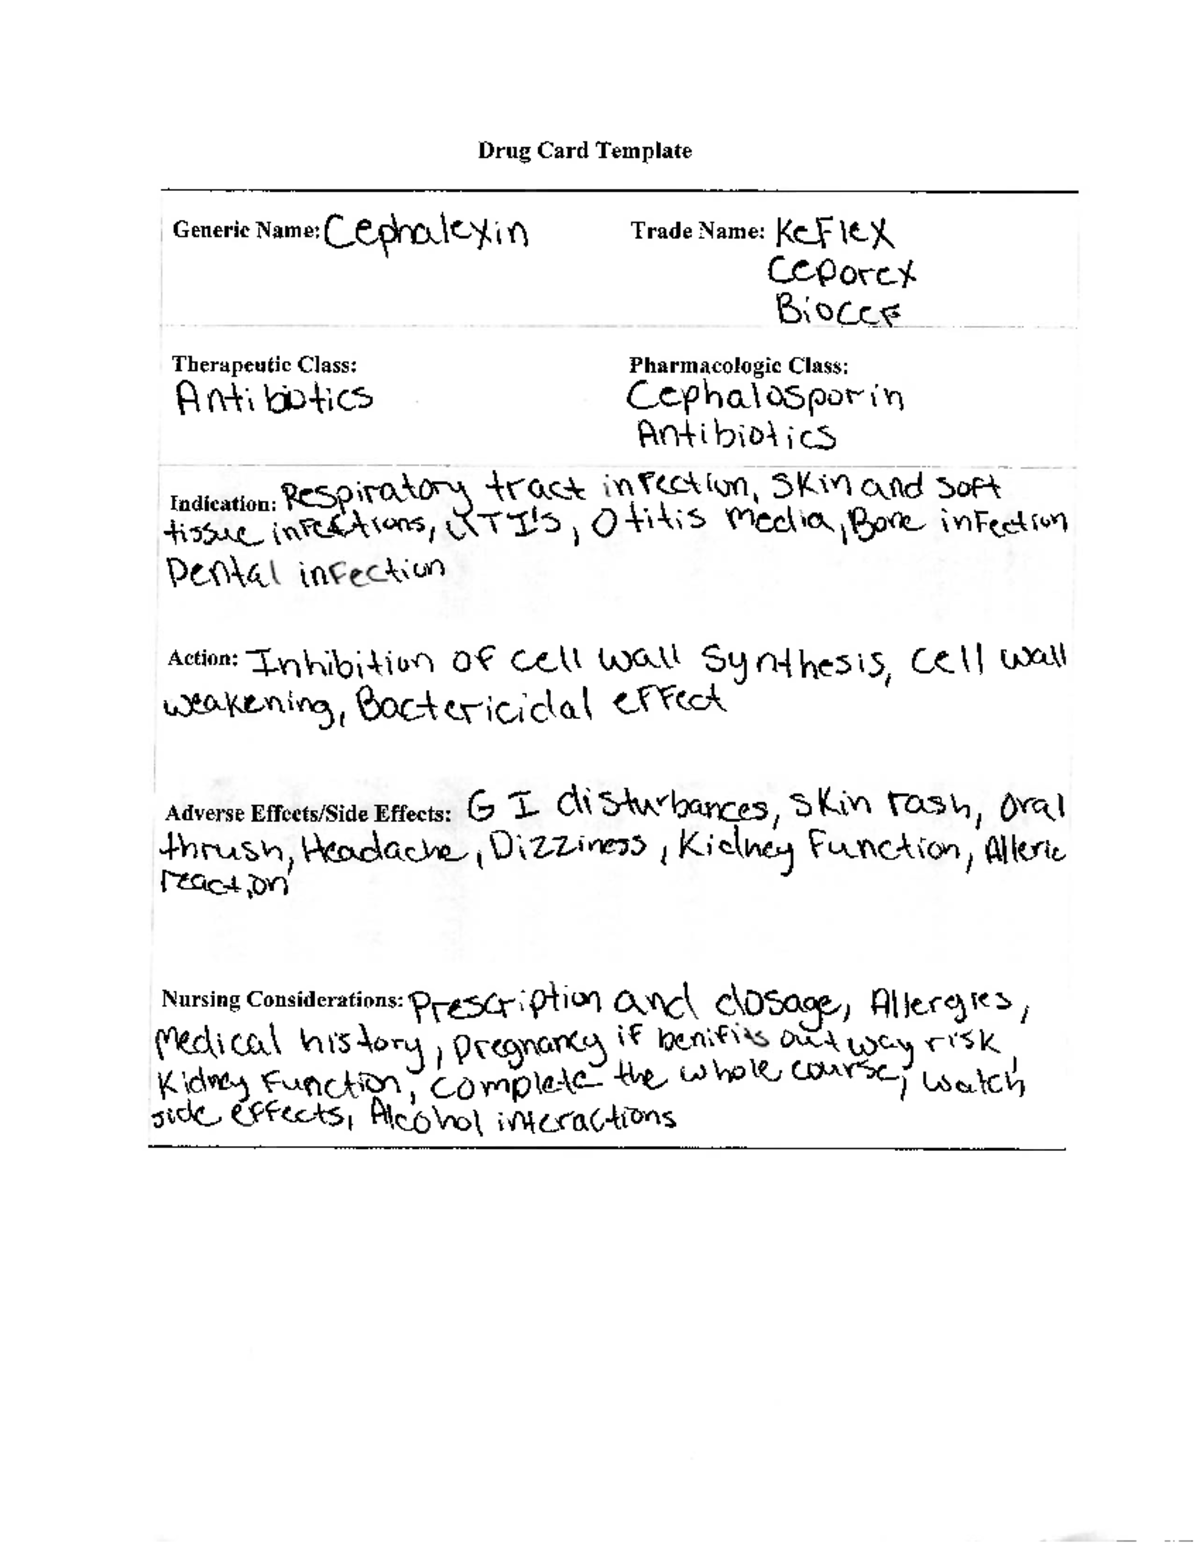 Drug Card Template
Generic Name: Cephalexin
Trade Name: KeFlex
Ceporex
BioceF
Therapeutic Class:
Antibiotics
Pharmacologic Class:
Cephalosporin
Antibiotics
Indication: Respiratory tract infection, skin and soft
tissue infections, UTI's, Otitis Media, Bone infection
Dental infection
Action: Inhibition of cell wall synthesis, cell wall
weakening, Bactericidal effect
Adverse Effects/Side Effects: GI disturbances, skin rash, oral
thrush, Headache, Dizziness, Kidney Function, Alleric
reaction
Nursing Considerations: Prescription and dosage, Allergies,
Medical history, pregnancy if benifits out way risk,
Kidney Function, complete the whole course, watch
side effects, Alcohol interactions